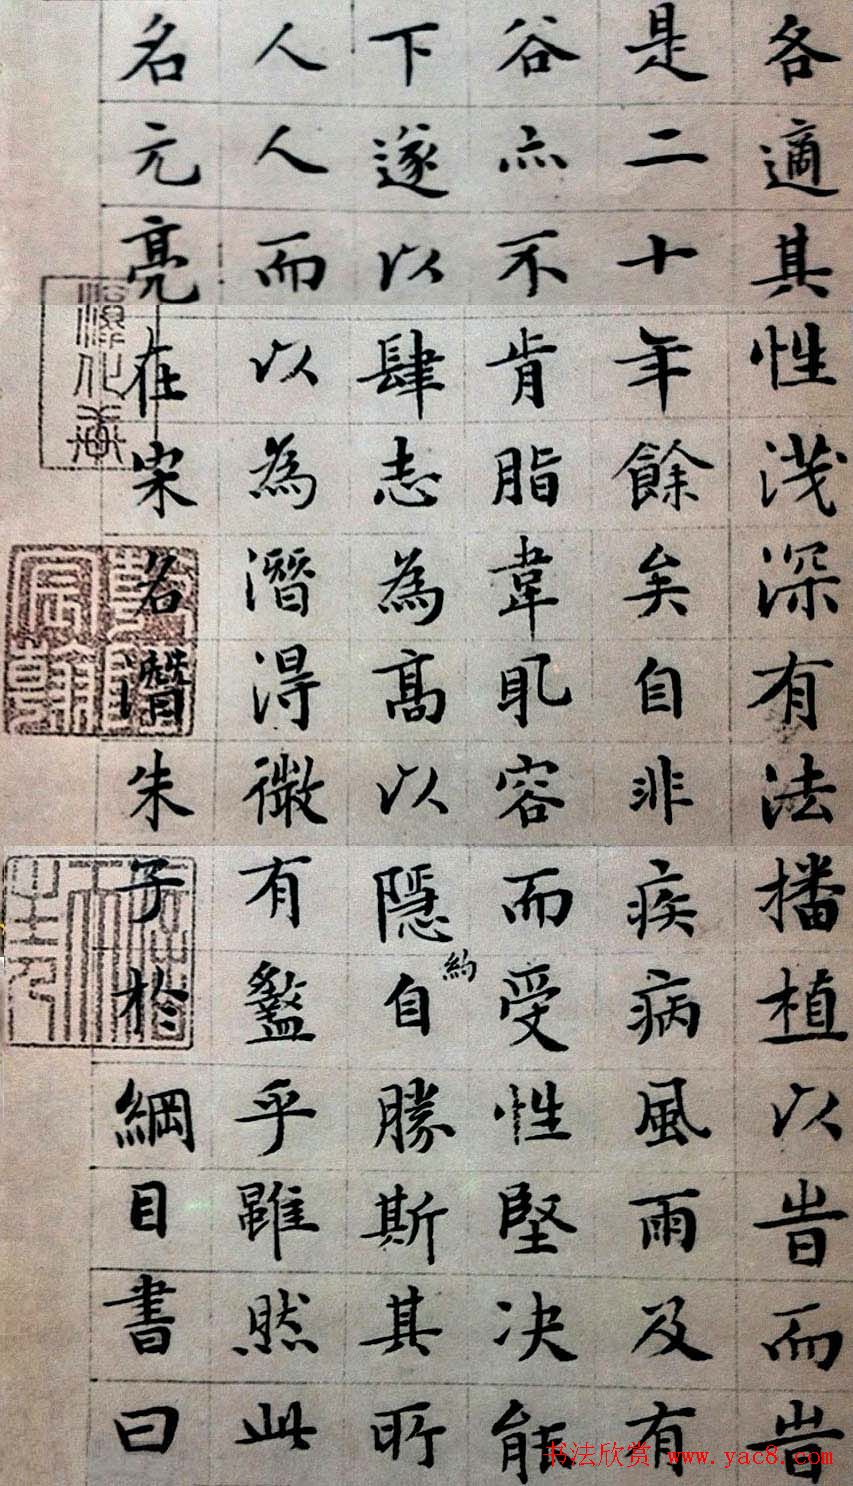 各適其性浅深有法播植以旹而旹
是二十年餘矣自非疾病風雨及有
谷亦不肯脂韋容而受性堅决能
下遂以肆志為高以隱約自勝斯其所
人人而以為潛得微有盭乎雖然此
名元亮在宋名潛朱子於綱目書曰
书法欣赏 www.yac8.com